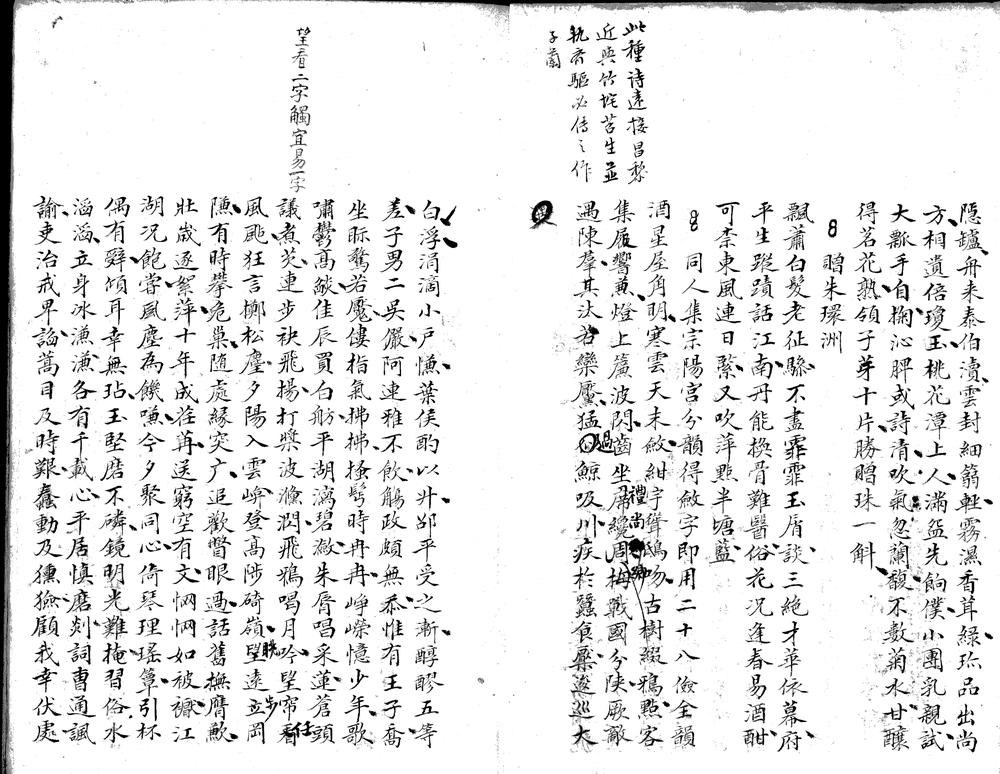 此種詩遠接昌黎
近與竹垞苕生並
軌齊驅必傳之作
子蘭
隱鑪舟来泰伯瀆雲封細篛輕霧濕香茸綠珎品出尚
方相遺倍瓊玉桃花潭上人滿盌先餉僕小團乳親試
大瓢手自掬沁脾或詩清吹氣忽蘭馥不數菊水甘釀
得茗花熟領子芽十片勝贈珠一斛
贈朱環洲
飄蕭白髮老征騐不盡霏霏玉屑談三絕才華依幕府
平生蹤蹟話江南丹能換骨難醫俗花况逢春易酒酣
可柰東風連日緊又吹萍點半塘藍
同人集宗陽宮分韻得斂字即用二十八儉全韻
酒星屋角明寒雲天末斂紺宇聳鴟吻古樹綴鴉點客
集屐響蒹燈上簾波閃齒坐席禮尚纔周梅戰國分陝厥敵
遇陳羣其汰若欒黶猛過鯨吸川疾於蠶食檿逡巡大
望看二字觸宜易一字
白浮涓滴小戶慊葉侯酌以升郤平受之漸醇醪五等
差子男二吴儼阿連雅不飲觴政頗無忝惟有王子喬
坐眎驁若魘僂指氣拂拂掻髩時冉冉崢嶸憶少年歌
嘯鬱髙燄佳辰買白舫平湖漓碧瀲朱脣唱采蓮蒼頭
議煮芡連步袂飛揚打槳波濒潤飛鴉唱月吟望帘看任
風颭狂言擲松麈夕陽入雲崦登髙陟碕嶺望眺遠立步岡
隒有時攀危巢随處緣突广追歡瞥眼過話舊撫膺歉
壯歲逐絮萍十年成荏苒送窮空有文惘惘如被襢江
湖况飽嘗風塵為饑嗛今夕聚同心倚琴理瑤簟引杯
偶有舜傾耳幸無玷玉堅磨不磷鏡明光難掩習俗水
滔滔立身冰漁漁各有千載心平居慎磨剡詞曹通諷
諭吏治戒卑諂蒿目及時艱蠢動及獯獫顧我幸伏處